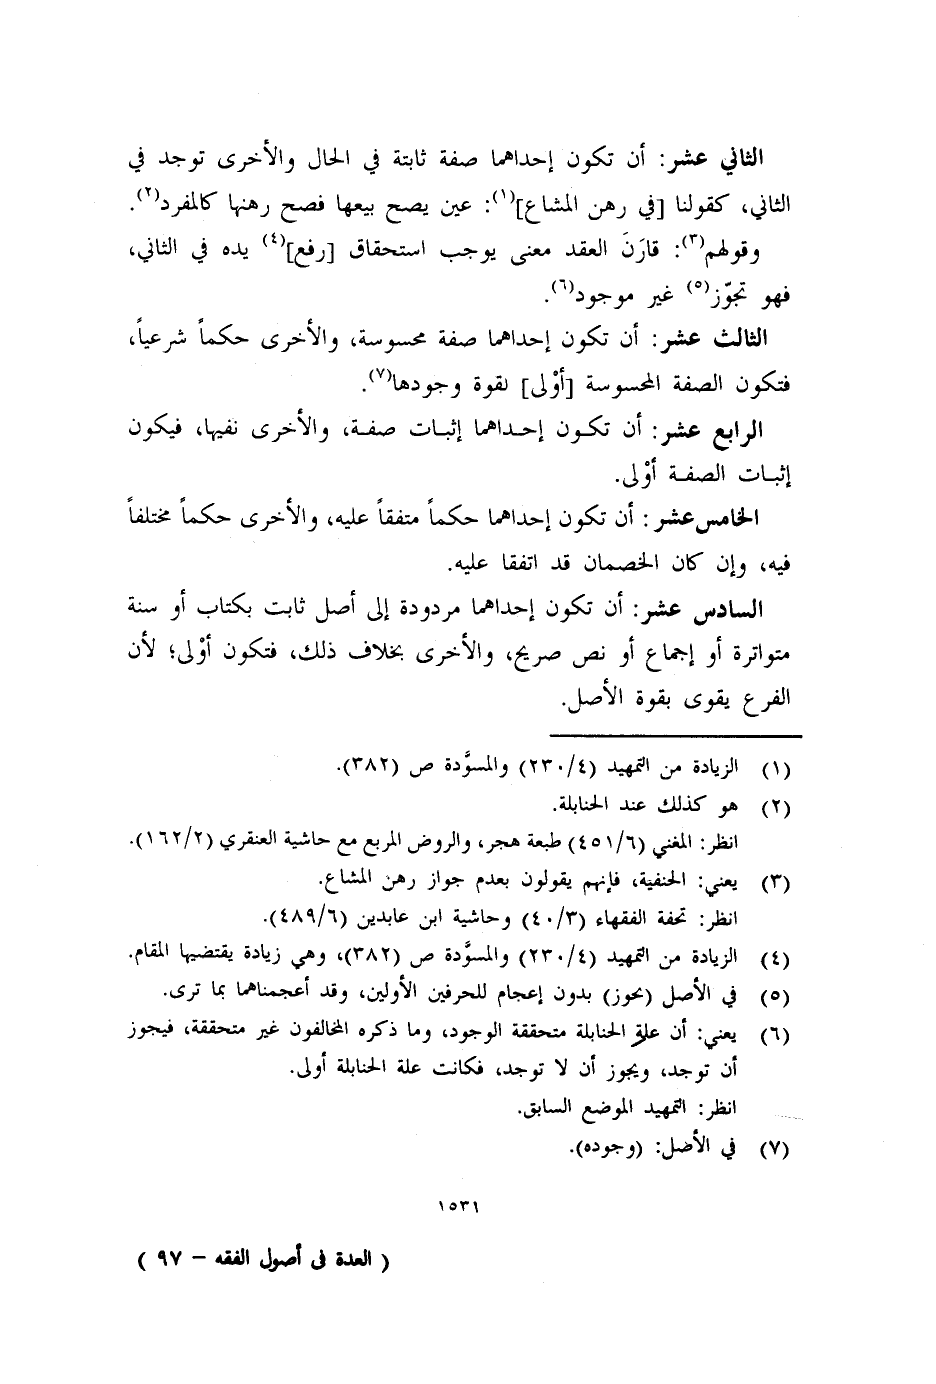 الثاني عشر: أن تكون إحداهما صفة ثابتة في الحال والأخرى توجد في
الثاني، كقولنا [في رهن المشاع](١): عين يصح بيعها فصح رهنها كالمفرد(٢).
وقولهم(٣): قارَنَ العقد معنى يوجب استحقاق [رفع](٤) يده في الثاني،
فهو تجوّز(٥) غير موجود(٦).
الثالث عشر: أن تكون إحداهما صفة محسوسة، والأخرى حكماً شرعياً،
فتكون الصفة المحسوسة [أوْلى] لقوة وجودها(٧).
الرابع عشر: أن تكون إحداهما إثبات صفة، والأخرى نفيها، فيكون
إثبات الصفة أوْلى.
الخامس عشر: أن تكون إحداهما حكماً متفقاً عليه، والأخرى حكماً مختلفاً
فيه، وإن كان الخصمان قد اتفقا عليه.
السادس عشر: أن تكون إحداهما مردودة إلى أصل ثابت بكتاب أو سنة
متواترة أو إجماع أو نص صريح، والأخرى بخلاف ذلك، فتكون أوْلى؛ لأن
الفرع يقوى بقوة الأصل.
(١) الزيادة من التمهيد (٢٣٠/٤) والمسوَّدة ص (٣٨٢).
(٢) هو كذلك عند الحنابلة.
انظر: المغني (٤٥١/٦) طبعة هجر، والروض المربع مع حاشية العنقري (١٦٢/٢).
(٣) يعني: الحنفية، فإنهم يقولون بعدم جواز رهن المشاع.
انظر: تحفة الفقهاء (٤٠/٣) وحاشية ابن عابدين (٤٨٩/٦).
(٤) الزيادة من التمهيد (٢٣٠/٤) والمسوَّدة ص (٣٨٢)، وهي زيادة يقتضيها المقام.
(٥) في الأصل (بحوز) بدون إعجام للحرفين الأولين، وقد أعجمناهما بما ترى.
(٦) يعني: أن علة الحنابلة متحققة الوجود، وما ذكره المخالفون غير متحققة، فيجوز
أن توجد، ويجوز أن لا توجد، فكانت علة الحنابلة أولى.
انظر: التمهيد الموضع السابق.
(٧) في الأصل: (وجوده).
١٥٣١
( العدة في أصول الفقه – ٩٧ )